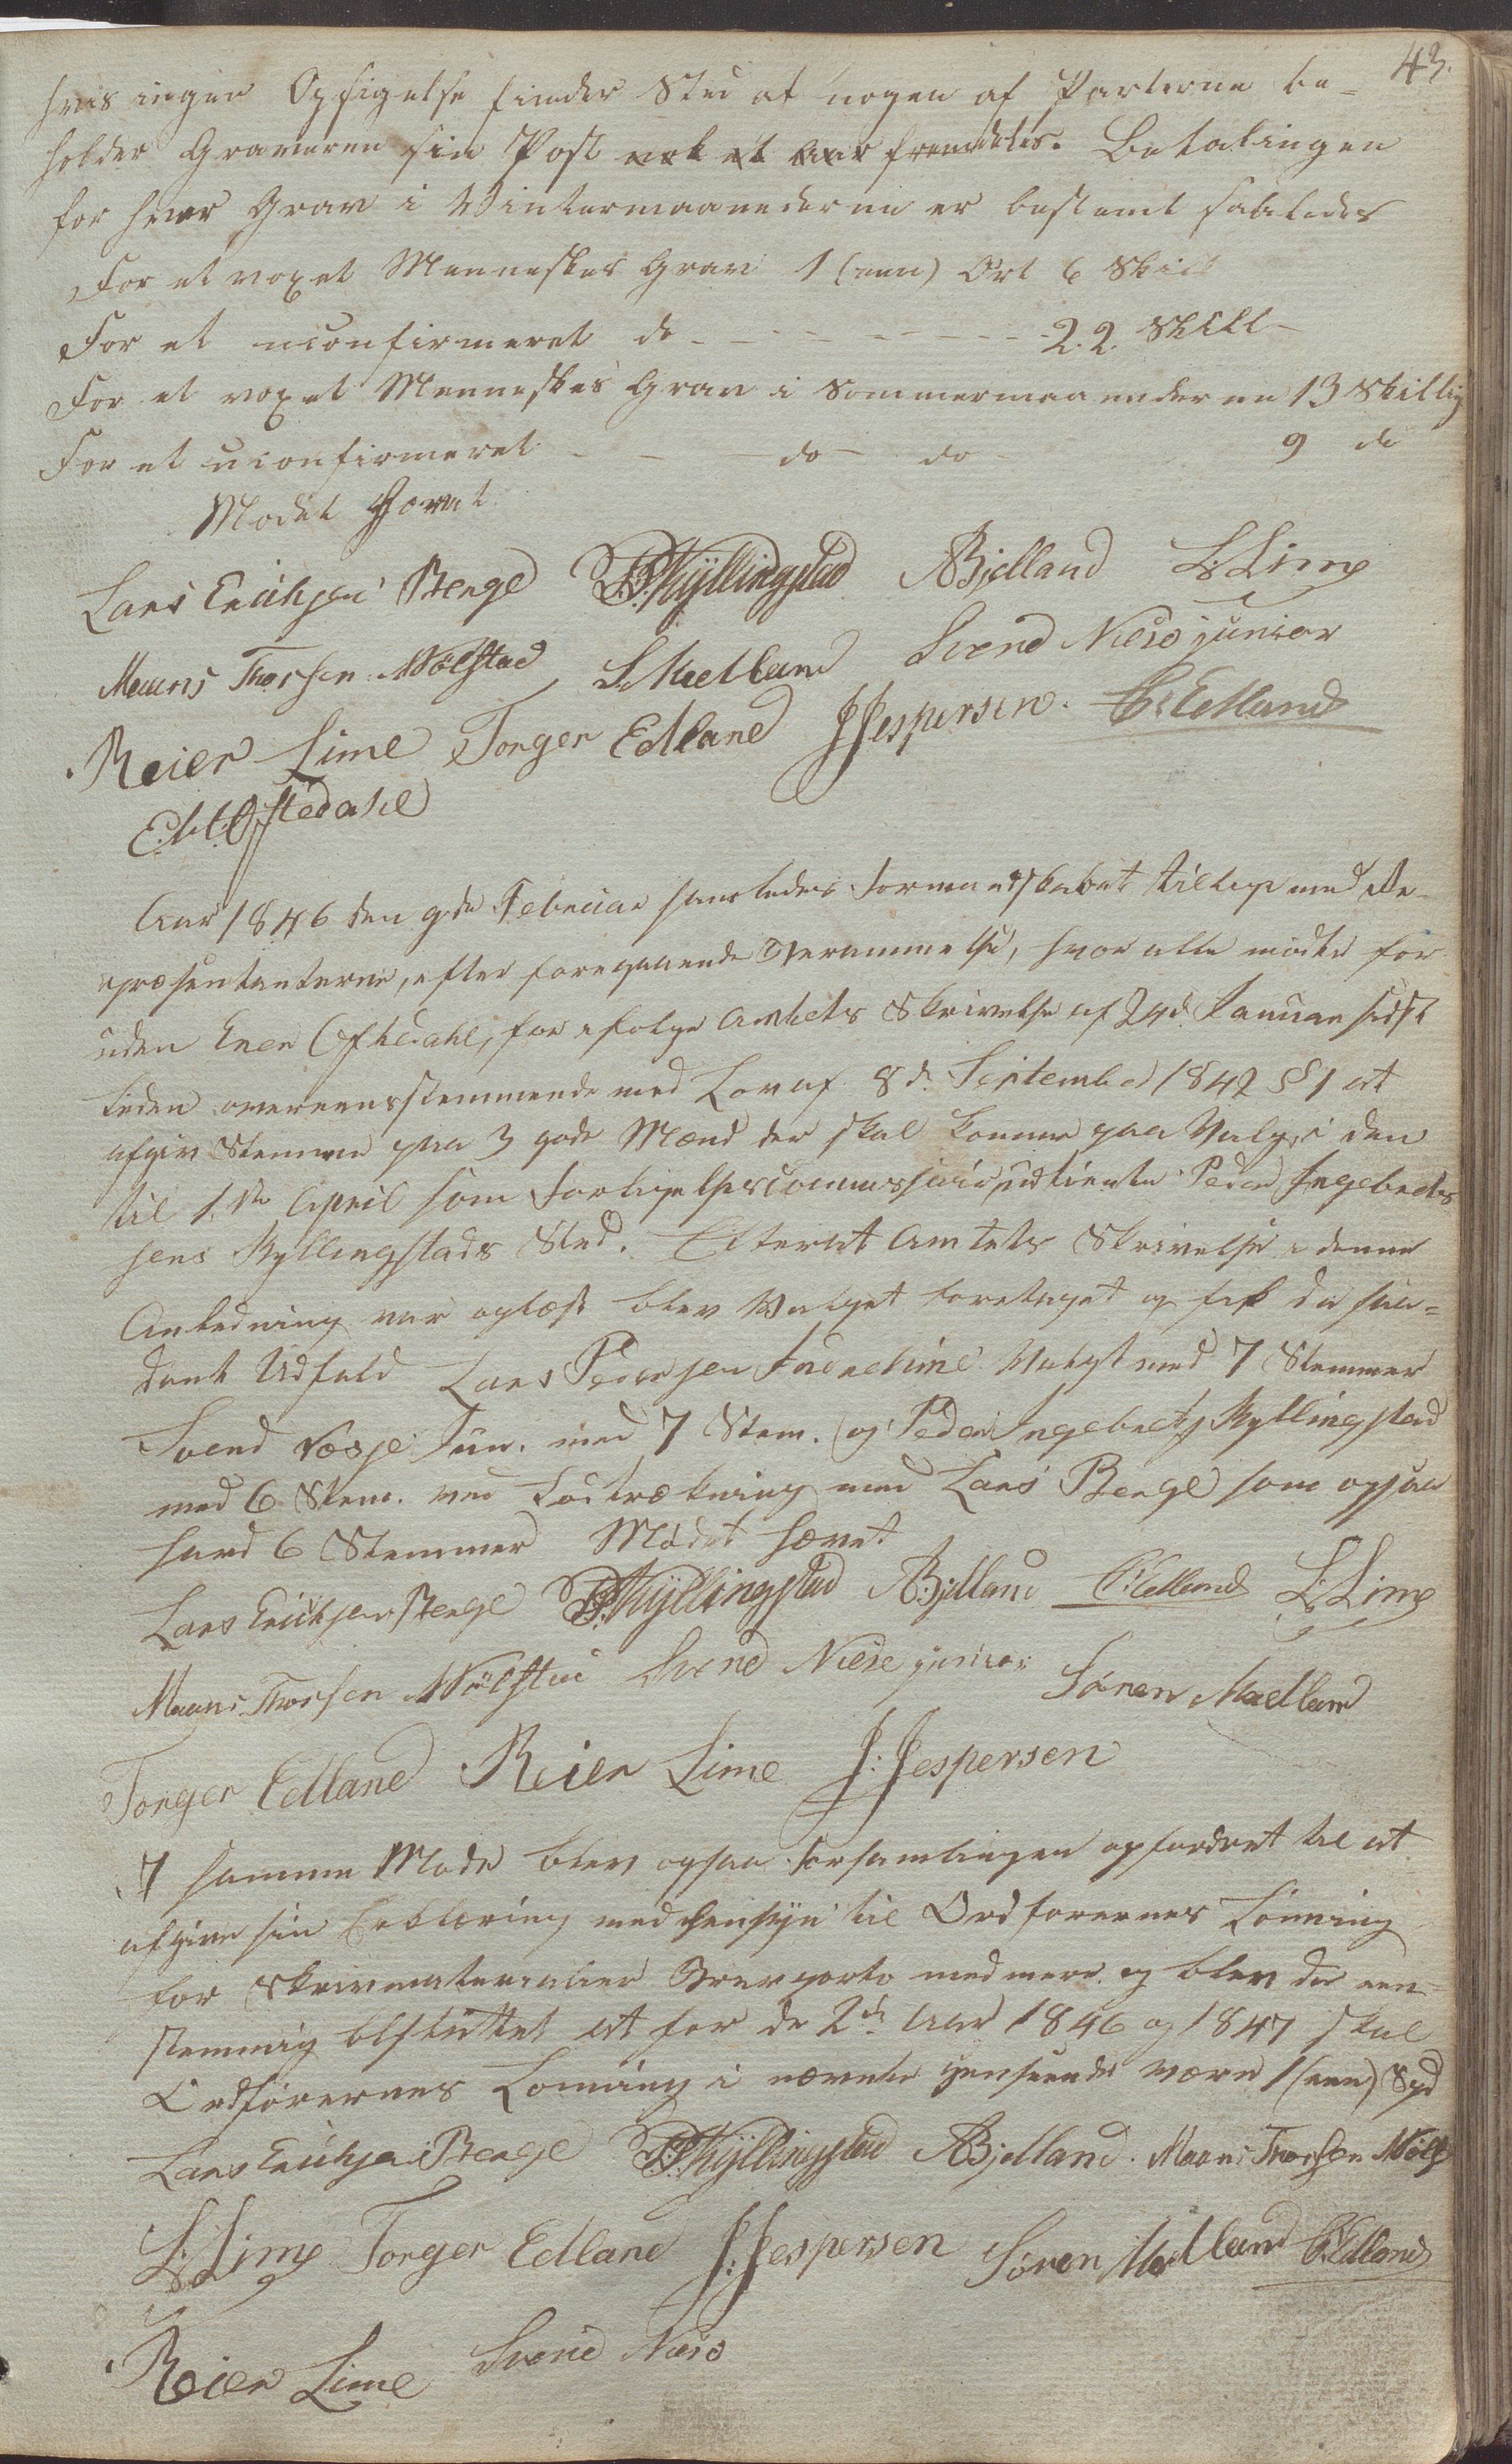 43.
hvis ingen Opsigelse finder Sted af nogen af Parterne be=
holder Graveren sin Post nok et Aar fremdeles. Betalingen
for hver Grav i Vintermaanederne er bestemt saaledes
For et voxet Menneskes Grav 1 (een) Ort 6 Skill
For et uconfirmeret do - - - - - - - 22 Skill
For et voxet Menneskes Grav i Sommermaanederne 13 Skillig
For et uconfirmeret - - do - do - 9 do
Mødet Hævet
Lars Erichsen Berge P.I.Kyllingstad ABjelland L:Lima
Maans Thorsen Mølstad S.Mæland Svend Næse junior
Reier Lime Torger Edland JJespersen. C:Edland
E.M.Oftedahl
Aar 1846 den 9de Februar samledes Formandskabet tillige med Re-
præsentanterne, efter foregaaende Berammelse, hvor alle mødte for
uden Ener Oftedahl, for ifølge Amtets Skrivelse af 24d. Januar sidst
leden overeensstemmende med Lov af 8d. September 1842 § 1 at
afgive Stemmer paa 3 gode Mænd der skal komme paa Valg i den
til 1ste April som Forligelsescommissair udtrædende Peder Ingebrets
sens Kyllingstads Sted. Efterat Amtets Skrivelse i denne
Anledning var oplæst blev Valget foretaget og fik da saa=
dant Udfald Lars Pedersen Indrelime Valgt med 7 Stemmer
Svend Næsse Jun. med 7 Stem. og Peder Ingebrets Kyllingstad
med 6 Stem. ved Lodtrækning med Lars Berge som ogsaa
havd 6 Stemmer Mødet hævet
Lars Erichsen Berge P.I.Kyllingstad ABjelland C:Edland L:Lima
Maans Thorsen Mølstad Svend Næse junior Søren Mæland
Torger Edland Reier Lime J:Jespersen
I samme Møde blev ogsaa Forsamlingen opfordret til at
afgive sin Erklæring med Hensyn til Ordførernes Lønning
for Skrivematerialier Brevporto med mere og blev da een-
stemmig besluttet at for de 2de Aar 1846 og 1847 skal
Ordførernes Lønning i nævnte Henseende være 1 (een) Spd
Lars Erichsen Berge P.I.Kyllingstad ABjelland. Maans Thorsen Mølst
L:Lima Torger Edland J:Jespersen Søren Mæland C:Edland
Reier Lime Svend Næse